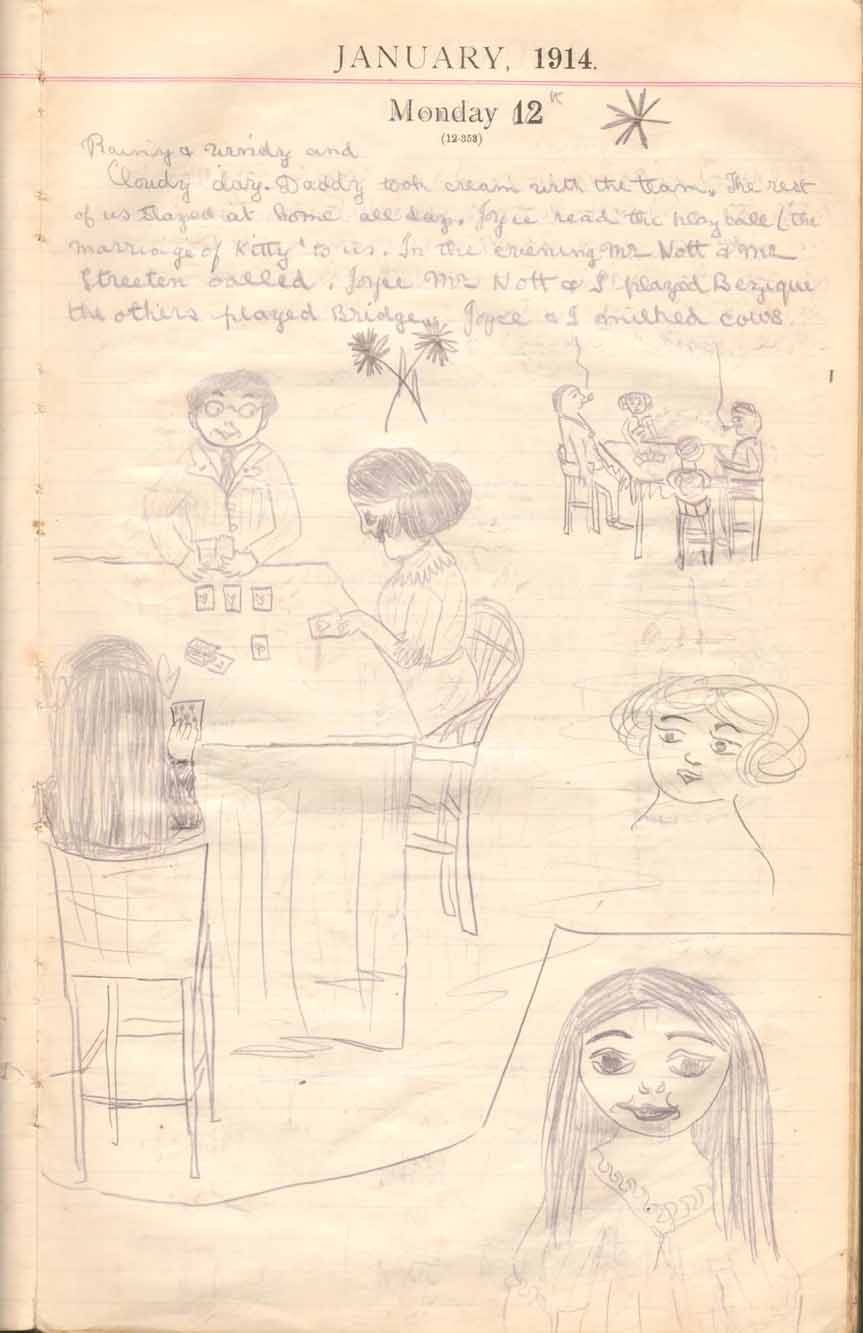 JANUARY, 1914.
Monday 12th
(12-353)
Rainy & windy and
Cloudy day. Daddy took cream with the team. The rest
of us stayed at home all day. Joyce read the play called (the
marriage of Kitty' to us. In the evening Mr Nott & Mr
Streeten called. Joyce Mr Nott & I played Bezique
the others played Bridge. Joyce & I milked cows.